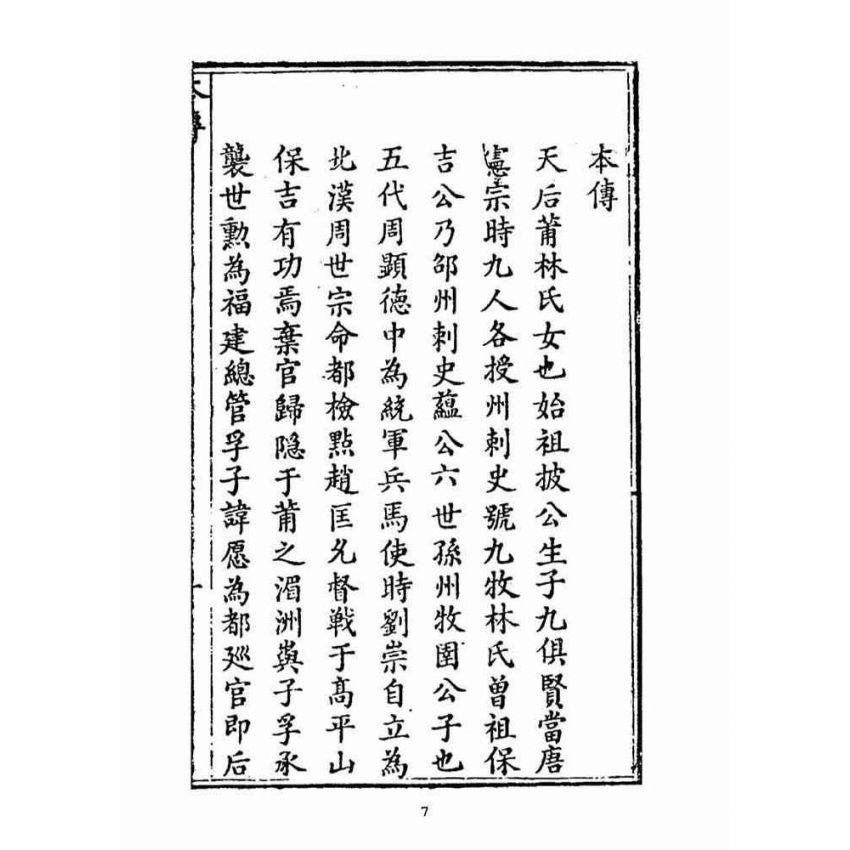 本傳
天后莆林氏女也始祖披公生子九俱賢當唐
憲宗時九人各授州刺史號九牧林氏曾祖保
吉公乃邵州刺史蘊公六世孫州牧圉公子也
五代周顯德中為統軍兵馬使時劉崇自立為
北漢周世宗命都檢點趙匡督戰于高平山
保吉有功焉棄官歸隐于莆之湄洲與子孚承
襲世勳為福建總管孚子諱愿為都廵官即后
7